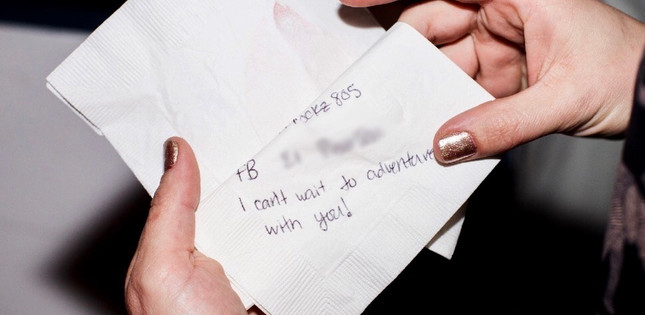 FB
I can't wait to adventure
with you!